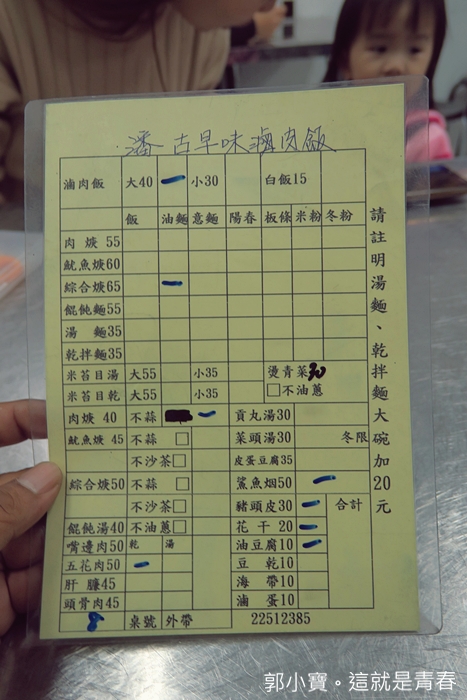 潘 古早味滷肉飯
滷肉飯 大40 小30 白飯15
飯 油麵 意麵 陽春 板條 米粉 冬粉
肉焿 55
魷魚焿60
綜合焿65
餛飩麵55
湯 麵35
乾拌麵35
米苔目湯 大55 小35 燙青菜30
米苔目乾 大55 小35 □不油蔥
肉焿 40 不蒜 貢丸湯30
魷魚焿 45 不蒜 □ 菜頭湯30 冬限
不沙茶□ 皮蛋豆腐35
綜合焿50 不蒜 □ 鯊魚烟50
不沙茶□ 豬頭皮30 合計
餛飩湯40 不油蔥□ 花 干20
嘴邊肉50 乾 湯 油豆腐10
五花肉50 豆 乾10
肝 膶45 海 帶10
頭骨肉45 滷 蛋10
桌號 外帶 22512385
請註明湯麵、乾拌麵大碗加20元
郭小寶。這就是青春